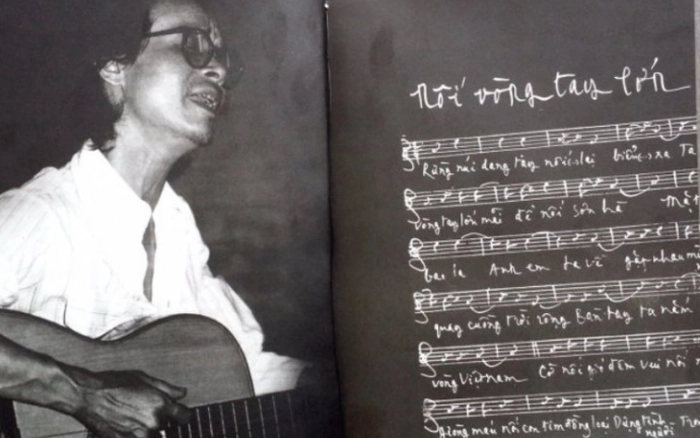 nối vòng tay lớn
Rừng núi dang tay nối lại biển xa Ta
vòng tay lớn mãi để nối sơn hà Mặt
bao la Anh em ta về gặp nhau mừ
quay cuồng trời rộng Bàn tay ta nắm
vòng Việt nam Cờ nối gió đêm vui nối
giòng máu nối con tim đồng loại Dựng tình người Tro